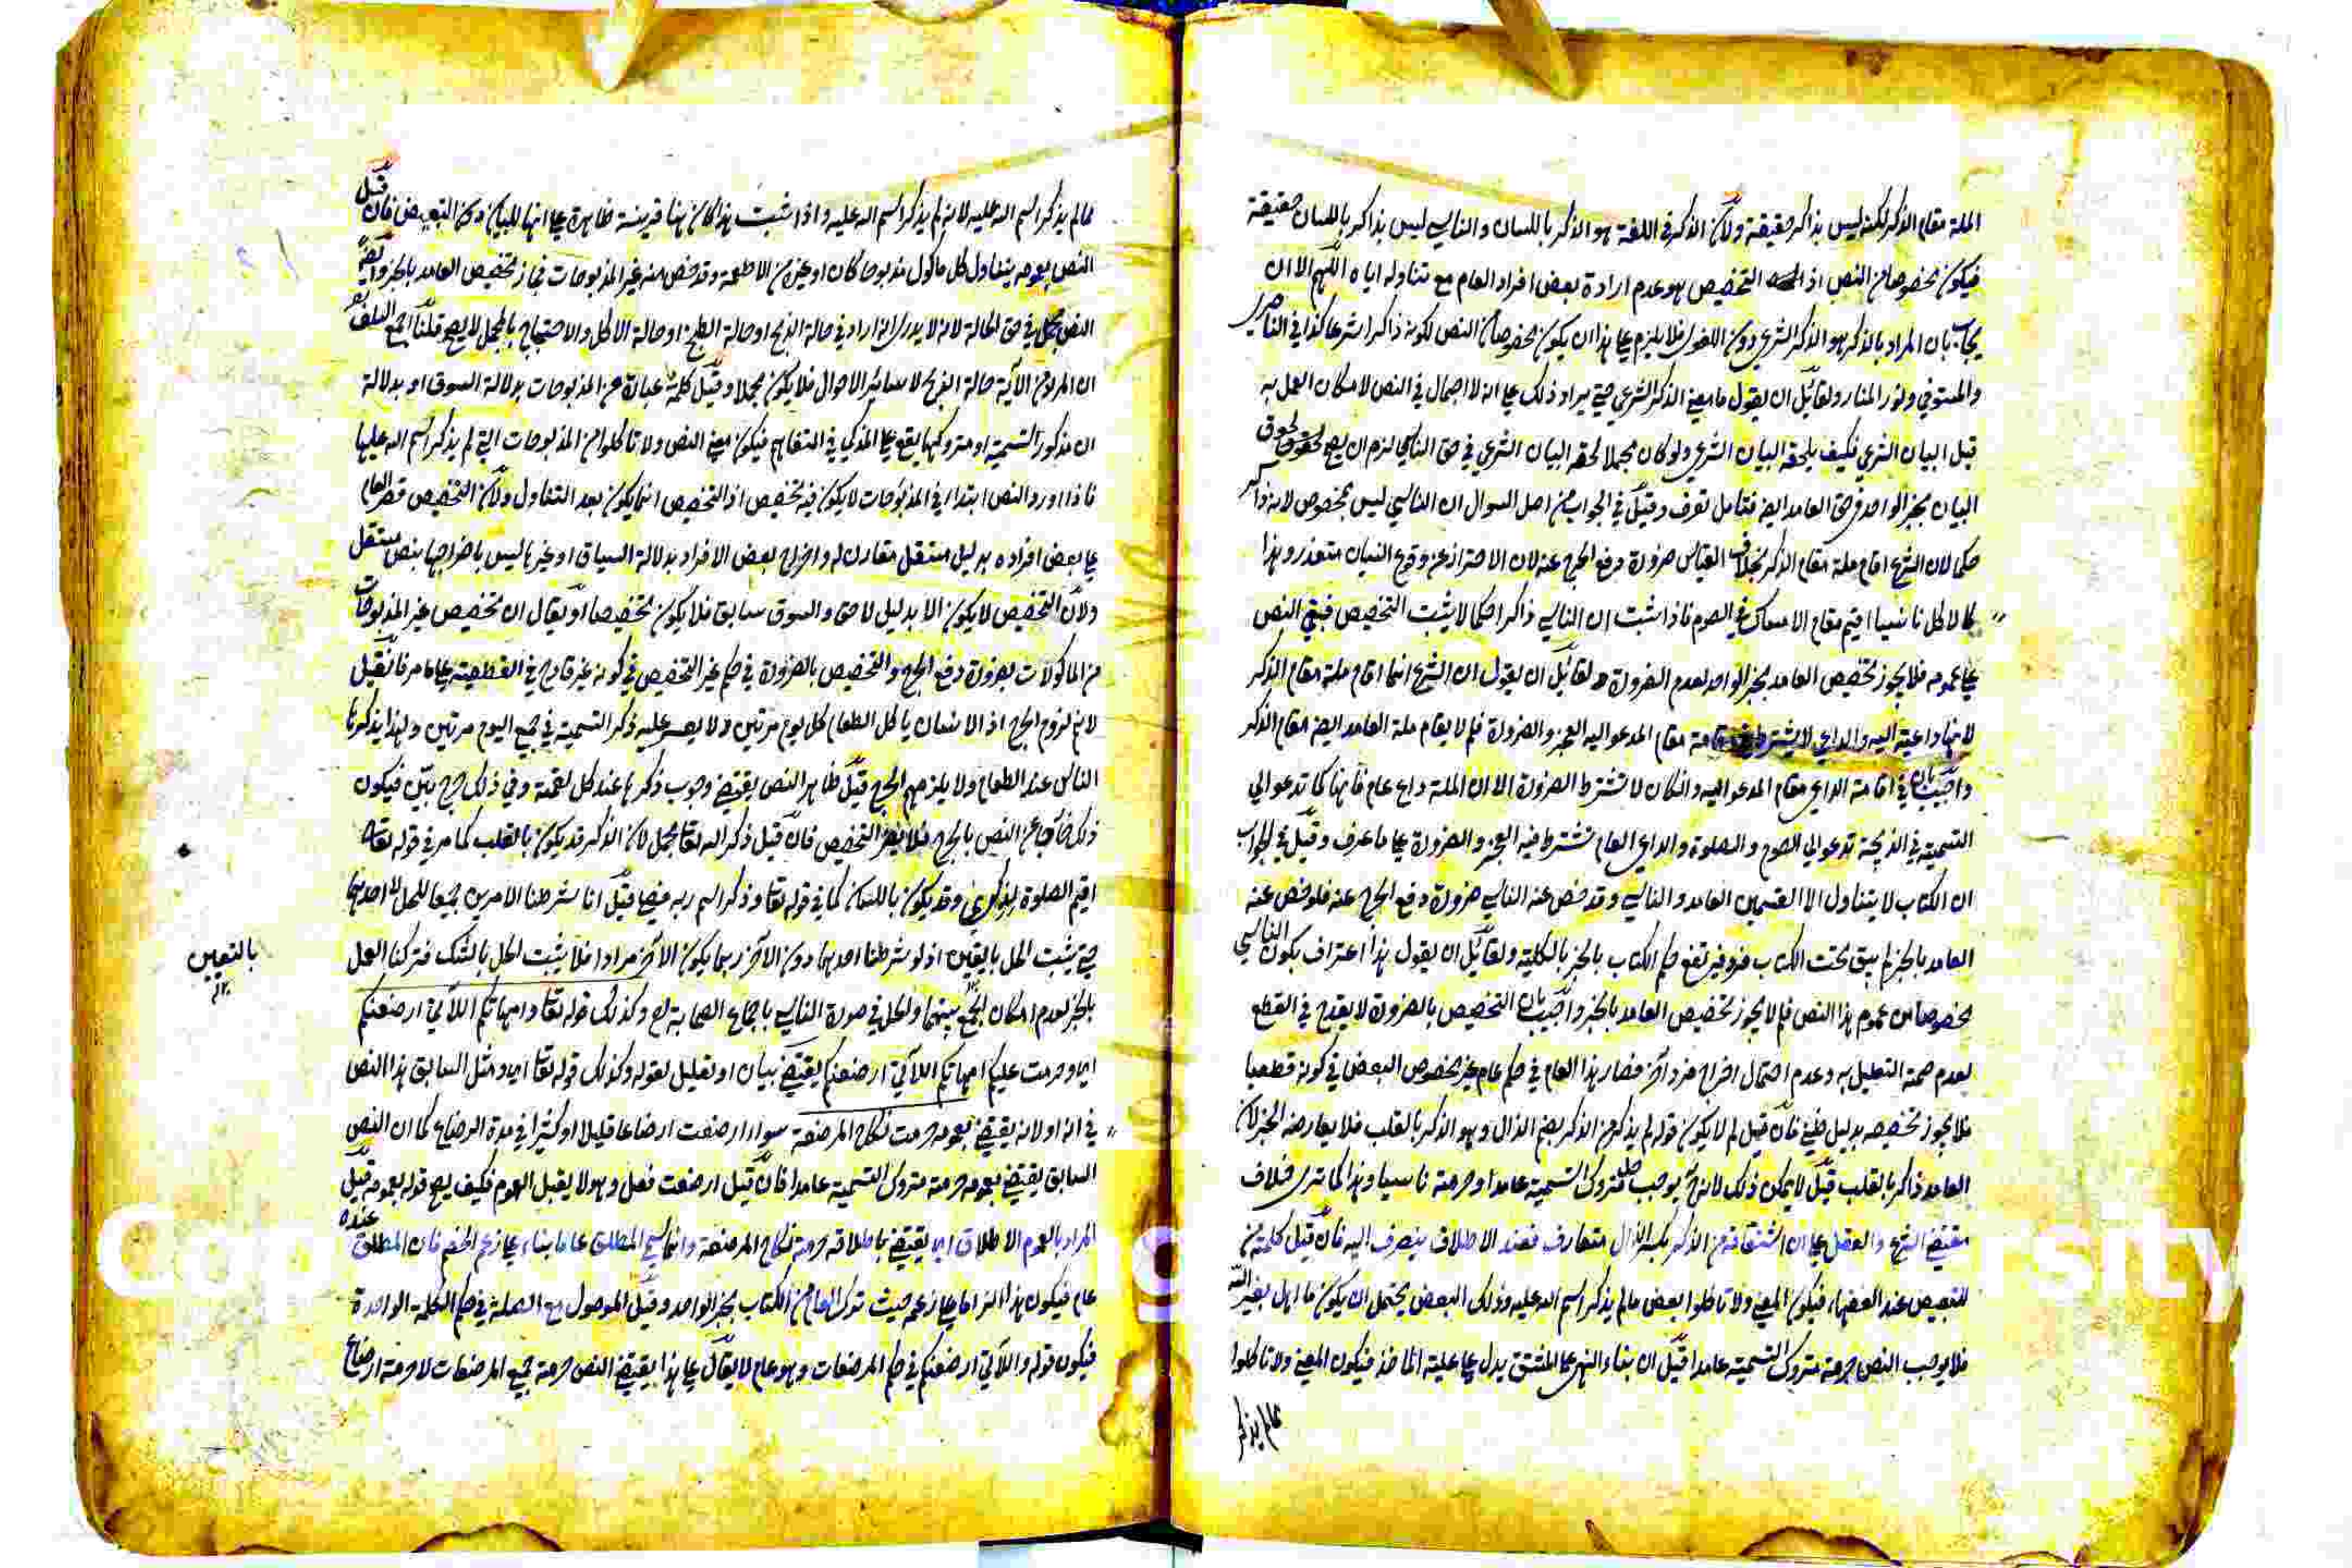 الملة مقام الذكر لكنه ليس بذاكر حقيقة ولان الذكر في اللغة هو الذكر باللسان والناسي ليس بذاكر باللسان حقيقة
فيكون مخصوصا من النص اذ التخصيص هو عدم ارادة بعض افراد العام مع تناوله اياه اللهم الا ان
يجاب بان المراد بالذكر هو الذكر الشرعي دون اللغوي فلا يلزم على هذا ان يكون مخصوصا من النص لكونه ذاكرا شرعا كذا في الناصري
والمستوفي ونور المنار ولقائل ان يقول ما معنى الذكر الشرعي حتى يراد ذلك على انه لا اجمال في النص لامكان العمل به
قبل البيان الشرعي فكيف يلحقه البيان الشرعي ولو كان مجملا لحقه البيان الشرعي في حق الناسي لزم ان يصح لحوق
البيان بخبر الواحد في حق العامد ايضا فتأمل تعرف وقيل في الجواب من اصل السوال ان الناسي ليس بمخصوص لانه ذاكر
حكما لان الشرع اقام ملة مقام الذكر بخلاف القياس ضرورة دفع الحرج عنه لان الاحتراز عن وقوع النسيان متعذر وهذا
كالاكل ناسيا اقيم مقام الامساك في الصوم فاذا ثبت ان الناسي ذاكر حكما لا يثبت التخصيص فبقي النص
على عمومه فلا يجوز تخصيص العامد بخبر الواحد لعدم الضرورة ولقائل ان يقول ان الشرع انما اقام ملة مقام الذكر
لانها داعية اليه والداعي لا يشترط في اقامته مقام المدعو اليه العجز والضرورة فلم لا يقام ملة العامد ايضا مقام الذكر
واجيب بان في اقامة الداعي مقام المدعو اليه وان كان لا تشترط الضرورة الا ان الملة داع عام فانها كما تدعو الى
التسمية في الذبيحة تدعو الى الصوم والصلوة والداعي العام تشترط فيه العجز والضرورة على ما عرف وقيل في الجواب
ان الكتاب لا يتناول الا القسمين العامد والناسي وقد خص عنه الناسي ضرورة دفع الحرج عنه فلو خص عنه
العامد بالخبر لم يبق تحت الكتاب فرد فيرتفع حكم الكتاب بالخبر بالكلية ولقائل ان يقول هذا اعتراف بكون الناسي
مخصوصا من عموم هذا النص فلم لا يجوز تخصيص العامد بالخبر واجيب بان التخصيص بالضرورة لا يقدح في القطع
لعدم صحة التعليل به وعدم احتمال اخراج فرد آخر فصار هذا العام في حكم عام غير مخصوص البعض في كونه قطعيا
فلا يجوز تخصيصه بدليل ظني فان قيل لم لا يكون قوله لم يذكر من الذكر بضم الذال وهو الذكر بالقلب فلا يعارضه الخبر لان
العامد ذاكر بالقلب قيل لا يمكن ذلك لانه يوجب حل متروك التسمية عامدا وحرمته ناسيا وهذا كما ترى خلاف
مقتضى الشرع والعقل على ان اشتقاقه من الذكر بكسر الذال متعارف فعند الاطلاق ينصرف اليه فان قيل كلمة من
للتبعيض عند الفقهاء فيكون المعنى ولا تاكلوا بعض مالم يذكر اسم الله عليه وذلك البعض يحتمل ان يكون ما اهل بغير الله
فلا يوجب النص حرمة متروك التسمية عامدا قيل ان بناء النهي على المشتق يدل على علية الماخذ فيكون المعنى ولا تاكلوا
مالم يذكر
مما لم يذكر اسم الله عليه لانه لم يذكر اسم الله عليه واذا ثبت هذا كان هنا قرينة ظاهرة على انها للبيان دون التبعيض فان قيل
النص بعمومه يتناول كل ماكول مذبوحا كان او غيره من الاطعمة وقد خص منه غير المذبوحات فجاز تخصيص العامد بالخبر وايضا
النص مجمل في حق الحالة لانه لا يدرى انه اراد في حالة الذبح او حالة الطبخ او حالة الاكل والاحتجاج بالمجمل لا يصح قلنا اجمع السلف
ان المراد من الآية حالة الذبح لا سائر الاحوال فلا يكون مجملا وقيل كلمة عبارة عن المذبوحات بدلالة السوق او بدلالة
ان مذكور التسمية او متروكها يقع على المذكى في التفاهم فيكون معنى النص ولا تاكلوا من المذبوحات التي لم يذكر اسم الله عليها
فاذا ورد النص ابتداء في المذبوحات لا يكون فيه تخصيص اذ التخصيص انما يكون بعد التناول ولان التخصيص قصر العام
على بعض افراده بدليل مستقل مقارن له واخراج بعض الافراد بدلالة السياق او غيرها ليس باخراجها بنص مستقل
ولان التخصيص لا يكون الا بدليل لاحق والسوق سابق فلا يكون تخصيصا او يقال ان تخصيص غير المذبوحات
من الماكولات بضرورة دفع الحرج والتخصيص بالضرورة في حكم غير التخصيص في كونه غير قادح في القطعية على ما مر فان قيل
لا نم لزوم الحرج اذ الانسان ياكل الطعام كل يوم مرتين ولا يعسر عليه ذكر التسمية في جميع اليوم مرتين ولهذا يذكرها
الناس عند الطعام ولا يلزمهم الحرج قيل ظاهر النص يقتضي وجوب ذكرها عند كل لقمة وفي ذلك حرج بين فيكون
ذلك خارجا عن النص بالحرج فلا يضر التخصيص فان قيل ذكر الله تعا مجمل لان الذكر قد يكون بالقلب كما مر في قوله تعا
اقم الصلوة لذكري وقد يكون باللسان كما في قوله تعا وذكر اسم ربه فصلى قيل انا شرطنا الامرين جميعا للحل لا احدهما
حتى يثبت الحل باليقين اذ لو شرطنا احدهما دون الآخر ربما يكون الآخر مرادا فلا يثبت الحل بالشك فتركنا العمل
بالتعيين
بالخبر لعدم امكان الجمع بينهما والحل في صورة الناسي باجماع الصحابة رضي وكذلك قوله تعا وامهاتكم اللاتي ارضعنكم
اي وحرمت عليكم امهاتكم اللاتي ارضعنكم يقتضي بيان او تعليل لقوله وكذلك قوله تعا اي ومثل السابق هذا النص
في انه اولا نه يقتضي بعمومه حرمت نكاح المرضعة سواء ارضعت ارضاعا قليلا او كثيرا في مدة الرضاع كما ان النص
السابق يقتضي بعمومه حرمة متروك التسمية عامدا فان قيل ارضعت فعل وهو لا يقبل العموم فكيف يصح قوله بعمومه قيل
المراد بالعموم الاطلاق اي يقتضي باطلاقه حرمة نكاح المرضعة وانما سمي المطلق عاما بناء على زعم الخصم فان المطلق عنده
عام فيكون هذا الزاما على زعمه حيث ترك العام من الكتاب بخبر الواحد وقيل الموصول مع الصلة في حكم الكلمة الواحدة
فيكون قوله واللاتي ارضعنكم في حكم المرضعات وهو عام لا يقال على هذا يقتضي النص حرمة جميع المرضعات لا حرمة ارضاع